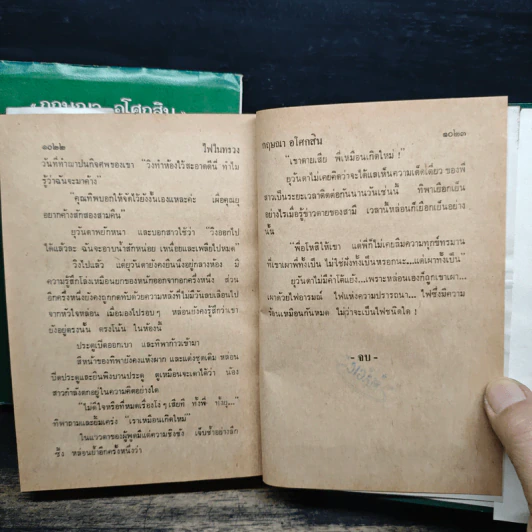 กฤษณา อโศกสิน
๑๐๒๒
ไฟในทรวง
วันที่ทำฌาปนกิจศพของเขา “วิงทำห้องไว้สะอาดดีนี่ ทำไม
รู้ว่าฉันจะมาค้าง”
“คุณทิพบอกให้จัดไว้ยังงั้นเองแหละค่ะ เผื่อคุณยุ
อยากค้างสักสองสามคืน”
ยุวันดาพยักหน้า และบอกสาวใช้ว่า “วิงออกไป
ได้แล้วละ ฉันจะอาบน้ำสักหน่อย เหนื่อยและเพลียไปหมด”
วิงไปแล้ว แต่ยุวันดายังคงยืนนิ่งอยู่กลางห้อง มี
ความรู้สึกโล่งเหมือนยกของหนักออกจากอกครึ่งหนึ่ง ส่วน
อีกครึ่งหนึ่งยังคงถูกกดทับด้วยความหลังที่ไม่มีวันลบเลือนไป
จากหัวใจหล่อน เมื่อมองไปรอบๆ หล่อนยังคงรู้สึกว่าเขา
ยังอยู่ตรงนั้น ตรงโน้น ในห้องนี้
ประตูเปิดออกเบา และทิพาก้าวเข้ามา
สีหน้าของทิพายังคงแห้งผาก และแต่งชุดเดิม หล่อน
ปิดประตูและยืนพิงบานประตู ดูเหมือนจะเดาได้ว่า น้อง
สาวกำลังตกอยู่ในความคิดอย่างใด
ทิพาถามและยิ้มเคร่ง “เราเหมือนเกิดใหม่”
ในแววตาของผู้พูดมีแต่ความชิงชัง เจ็บช้ำอย่างลึก
ซึ้ง หล่อนย้ำอีกครั้งหนึ่งว่า
กฤษณา อโศกสิน
๑๐๒๓
“เขาตายเสีย พี่เหมือนเกิดใหม่ !”
ยุวันดาไม่เคยคิดว่าจะได้แลเห็นความเด็ดเดี่ยว ของพี่
สาวเป็นระยะเวลาติดต่อกันนานวันเช่นนี้ ทิพาเยือกเย็น
อย่างไรเมื่อรู้ข่าวตายของสามี เวลานี้หล่อนก็เยือกเย็นอย่าง
นั้น
“พี่อโหสิให้เขา แต่พี่ก็ไม่เคยลืมความทุกข์ทรมาน
ที่เขาเผาพี่ทั้งเป็น ไม่ใช่ฝังทั้งเป็นหรอกนะ...แต่เผาทั้งเป็น”
ยุวันดาไม่มีคำโต้แย้ง...เพราะหล่อนเองก็ถูกเขาเผา...
เผาด้วยไฟอารมณ์ ไฟแห่งความปรารถนา... ไฟซึ่งมีความ
ร้อนเหมือนกันหมด ไม่ว่าจะเป็นไฟชนิดใด !
- จบ -